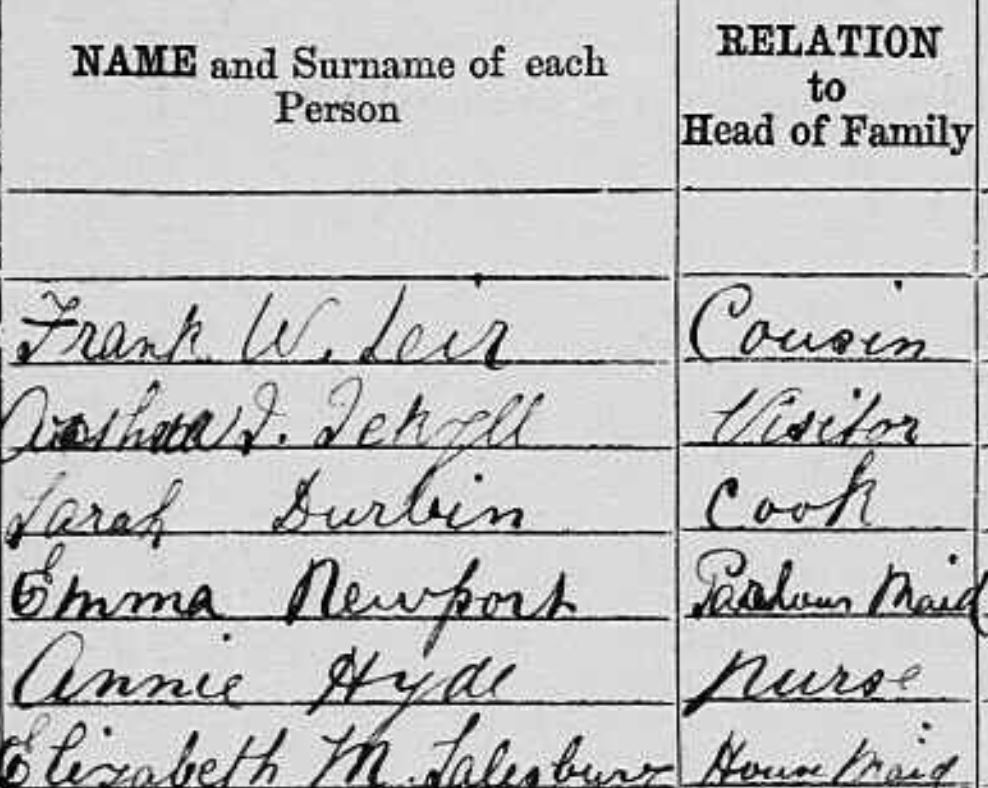 NAME and Surname of each
Person
RELATION
to
Head of Family
Frank W. Leir Cousin
J. Jekyll Visitor
Sarah Durbin Cook
Emma Newport Parlour Maid
Annie Hyde Nurse
Elizabeth M. Salesbury House Maid